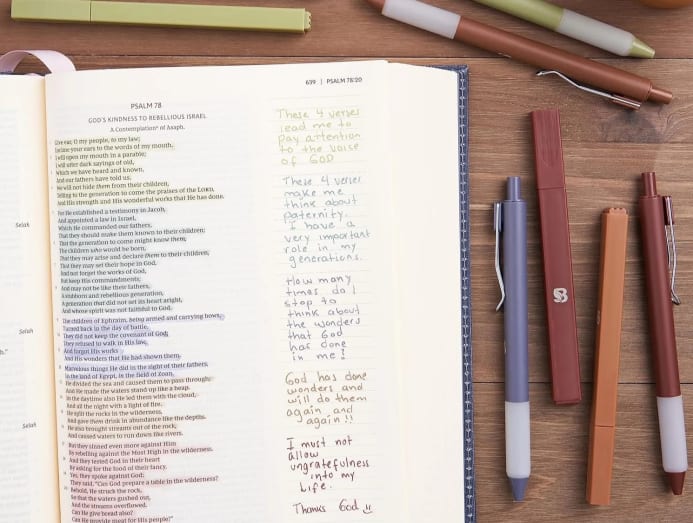 639 | PSALM 78:20
PSALM 78
GOD'S KINDNESS TO REBELLIOUS ISRAEL
A Contemplation of Asaph.
Give ear, O my people, to my law;
Incline your ears to the words of my mouth.
I will open my mouth in a parable;
I will utter dark sayings of old,
Which we have heard and known,
And our fathers have told us.
We will not hide them from their children,
Telling to the generation to come the praises of the LORD,
And His strength and His wonderful works that He has done.
For He established a testimony in Jacob,
And appointed a law in Israel,
Which He commanded our fathers,
That they should make them known to their children;
That the generation to come might know them,
The children who would be born,
That they may arise and declare them to their children,
That they may set their hope in God,
And not forget the works of God,
But keep His commandments;
And may not be like their fathers,
A stubborn and rebellious generation,
A generation that did not set its heart aright,
And whose spirit was not faithful to God.
The children of Ephraim, being armed and carrying bows,
Turned back in the day of battle.
They did not keep the covenant of God;
They refused to walk in His law,
And forgot His works
And His wonders that He had shown them.
Marvelous things He did in the sight of their fathers,
In the land of Egypt, in the field of Zoan.
He divided the sea and caused them to pass through;
And He made the waters stand up like a heap.
In the daytime also He led them with the cloud,
And all the night with a light of fire.
He split the rocks in the wilderness,
And gave them drink in abundance like the depths.
He also brought streams out of the rock,
And caused waters to run down like rivers.
But they sinned even more against Him
By rebelling against the Most High in the wilderness.
And they tested God in their heart
By asking for the food of their fancy.
Yes, they spoke against God:
They said, "Can God prepare a table in the wilderness?
Behold, He struck the rock,
So that the waters gushed out,
And the streams overflowed.
Can He give bread also?
Can He provide meat for His people?"
These 4 verses
lead me to
pay attention
to the voice
of GOD
These 4 verses
make me
think about
paternity.
I have a
very important
role in my
generations.
How many
times do I
stop to
think about
the wonders
that God
has done
in me!
God has done
wonders and
will do them
again and
again!!
I must not
allow
ungratefulness
into my
Life.
Thanks God
Selah
Selah
Selah